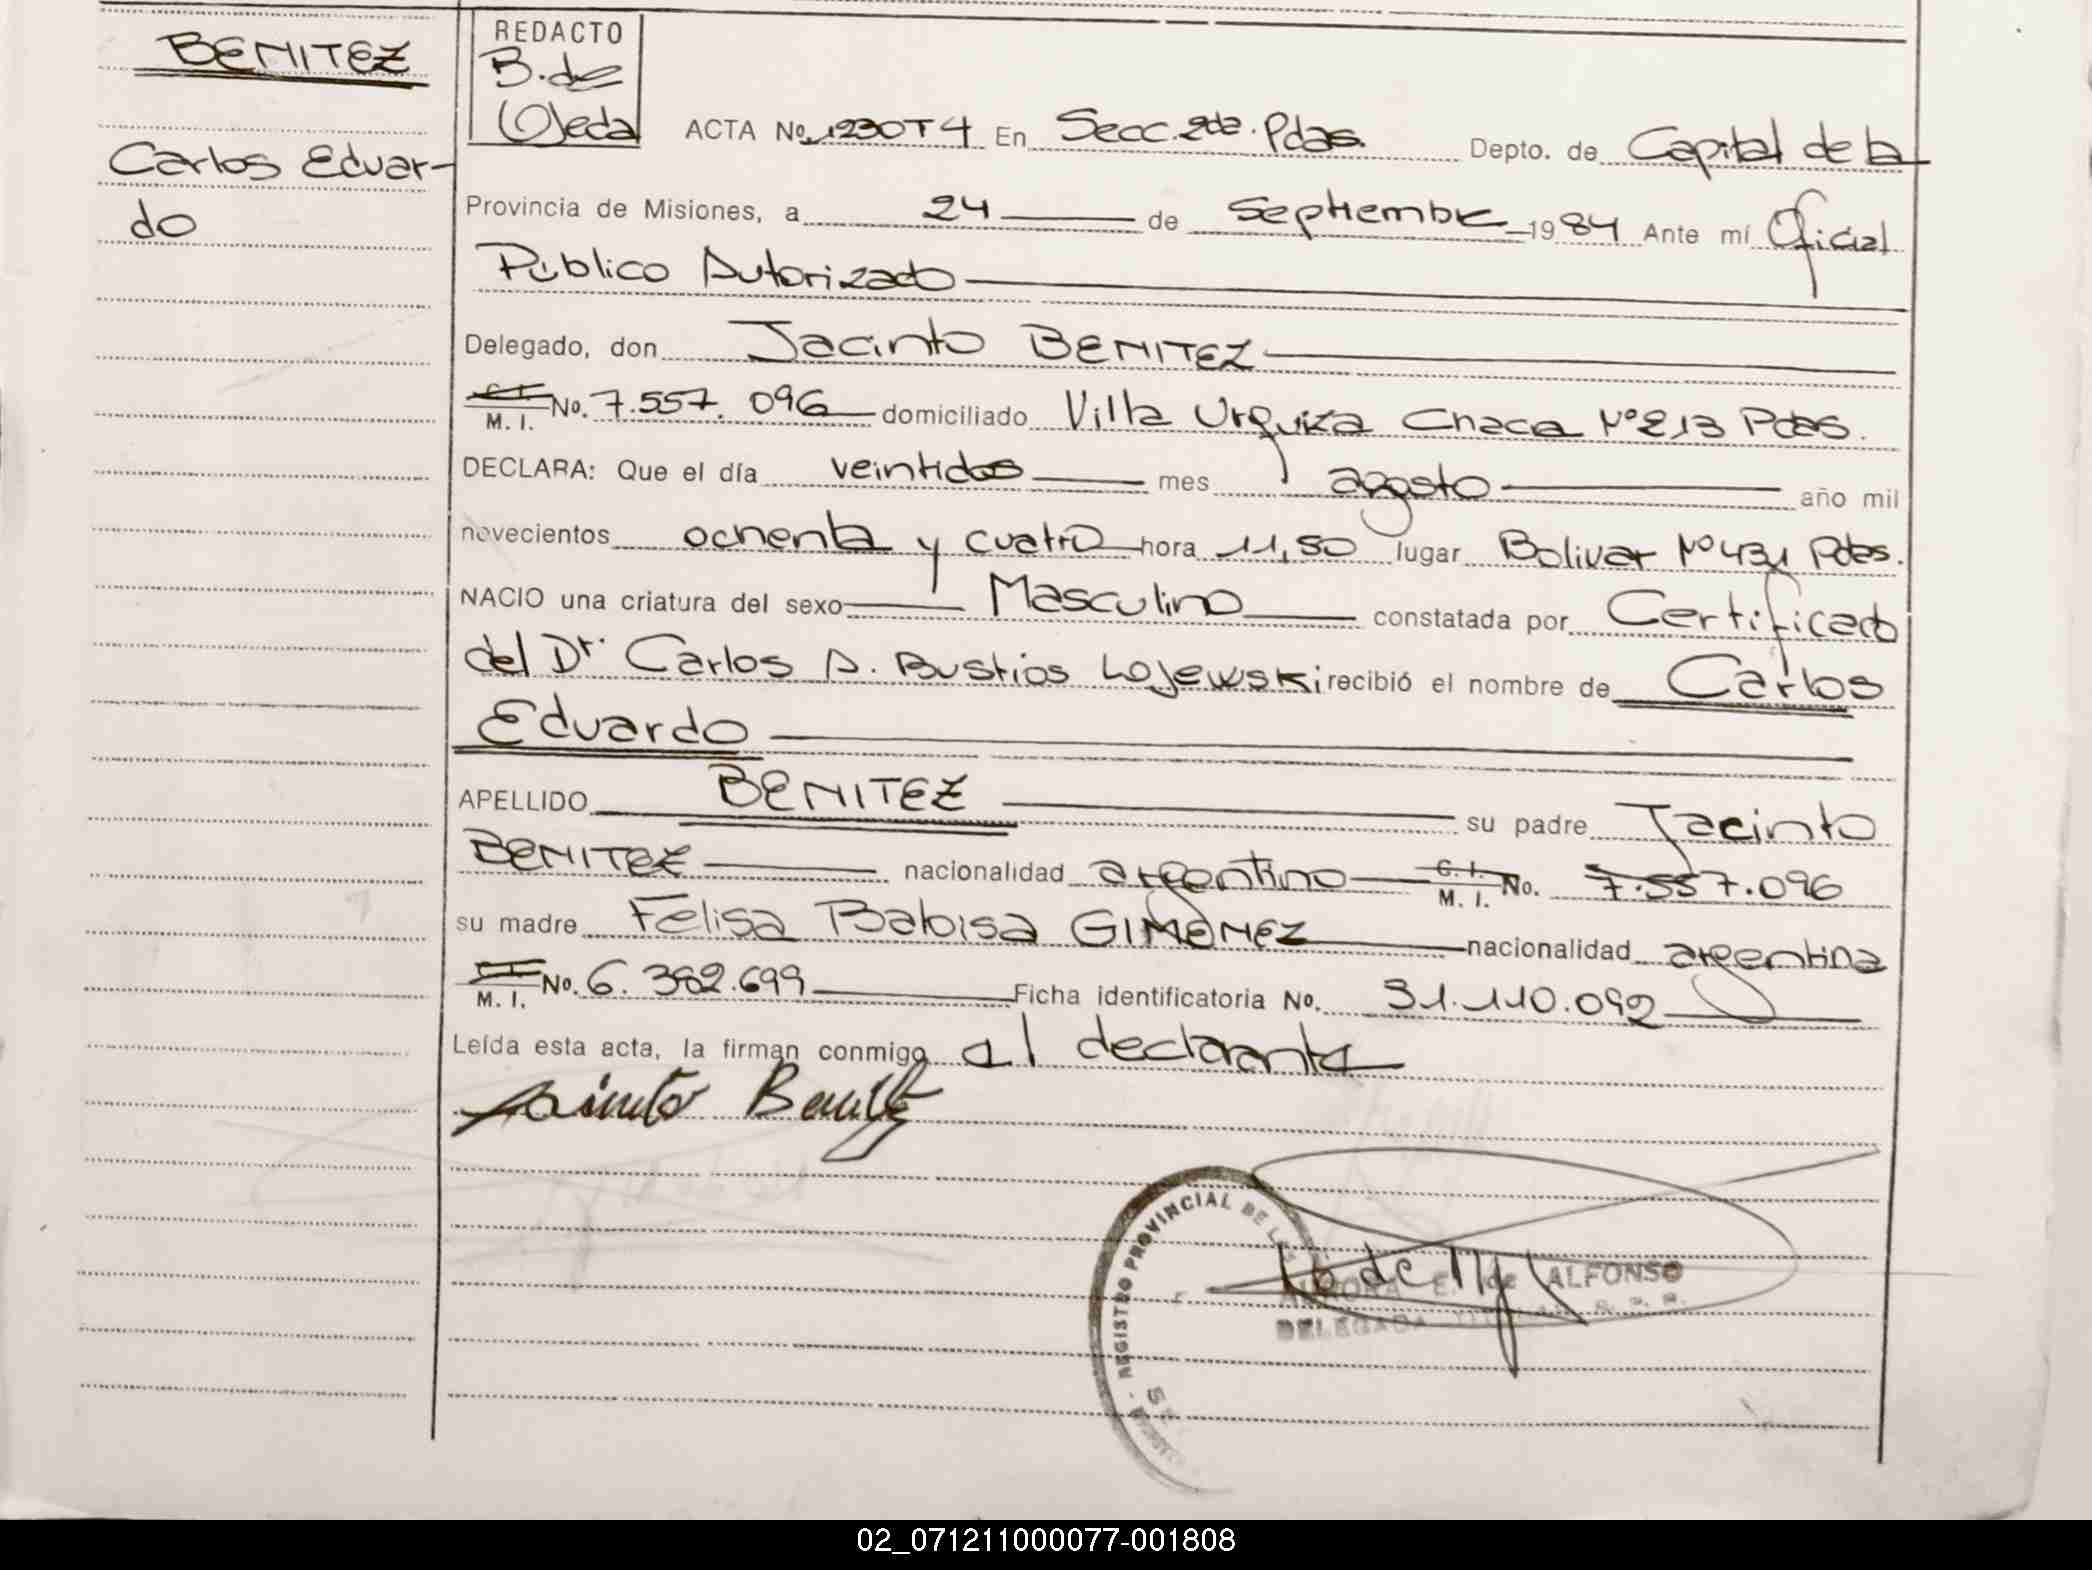 BENITEZ
Carlos Eduar-
do
REDACTO
B. de
Ojeda
ACTA No. 1230T4 En Secc. 2da. Pdas. Depto. de Capital de la
Provincia de Misiones, a 24 de Septiembre 1984 Ante mí Oficial
Público Autorizado
Delegado, don Jacinto BENITEZ
C. I. M. I. No. 7.557.096 domiciliado Villa Urquiza Chaca Nº 213 Pdas.
DECLARA: Que el día veintidos mes agosto año mil
novecientos ochenta y cuatro hora 11,50 lugar Bolivar Nº 431 Pdas.
NACIO una criatura del sexo Masculino constatada por Certificado
del Dr. Carlos A. Bustios Lojewski recibió el nombre de Carlos
Eduardo
APELLIDO BENITEZ su padre Jacinto
BENITEZ nacionalidad argentino C. I. M. I. No. 7.557.096
su madre Felisa Baloisa GIMENEZ nacionalidad argentina
M. I. No. 6.382.699 Ficha identificatoria No. 31.110.092
Leída esta acta, la firman conmigo el declarante
Jacinto Benitez
REGISTRO PROVINCIAL DE LAS
AURORA E. de ALFONSO
DELEGADA TITULAR R. P. P.
02_071211000077-001808